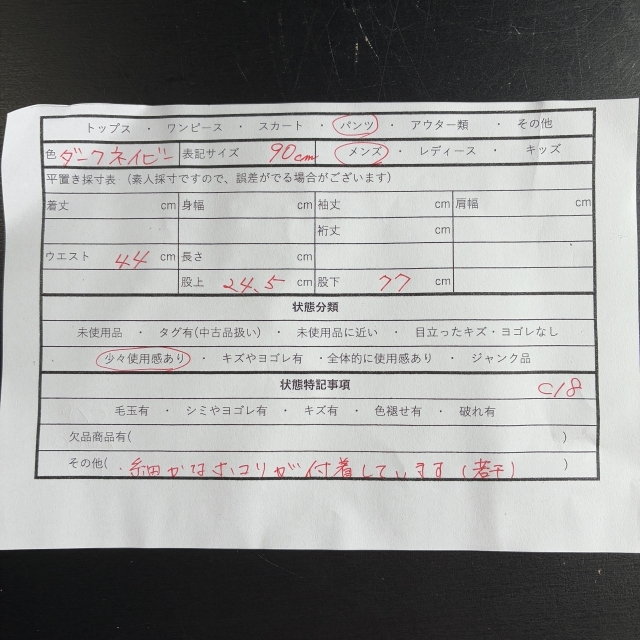 トップス ・ ワンピース ・ スカート ・ パンツ ・ アウター類 ・ その他
色 ダークネイビー 表記サイズ 90cm メンズ ・ レディース ・ キッズ
平置き採寸表 (素人採寸ですので、誤差がでる場合がございます)
着丈 cm 身幅 cm 袖丈 cm 肩幅 cm
裄丈 cm
ウエスト 44 cm 長さ cm
股上 24.5 cm 股下 77 cm
状態分類
未使用品 ・ タグ有(中古品扱い) ・ 未使用に近い ・ 目立ったキズ・ヨゴレなし
少々使用感あり ・ キズやヨゴレ有 ・全体的に使用感あり ・ ジャンク品
状態特記事項 C18
毛玉有 ・ シミやヨゴレ有 ・ キズ有 ・ 色褪せ有 ・ 破れ有
欠品商品有( )
その他( ・細かなホコリが付着しています(若干) )